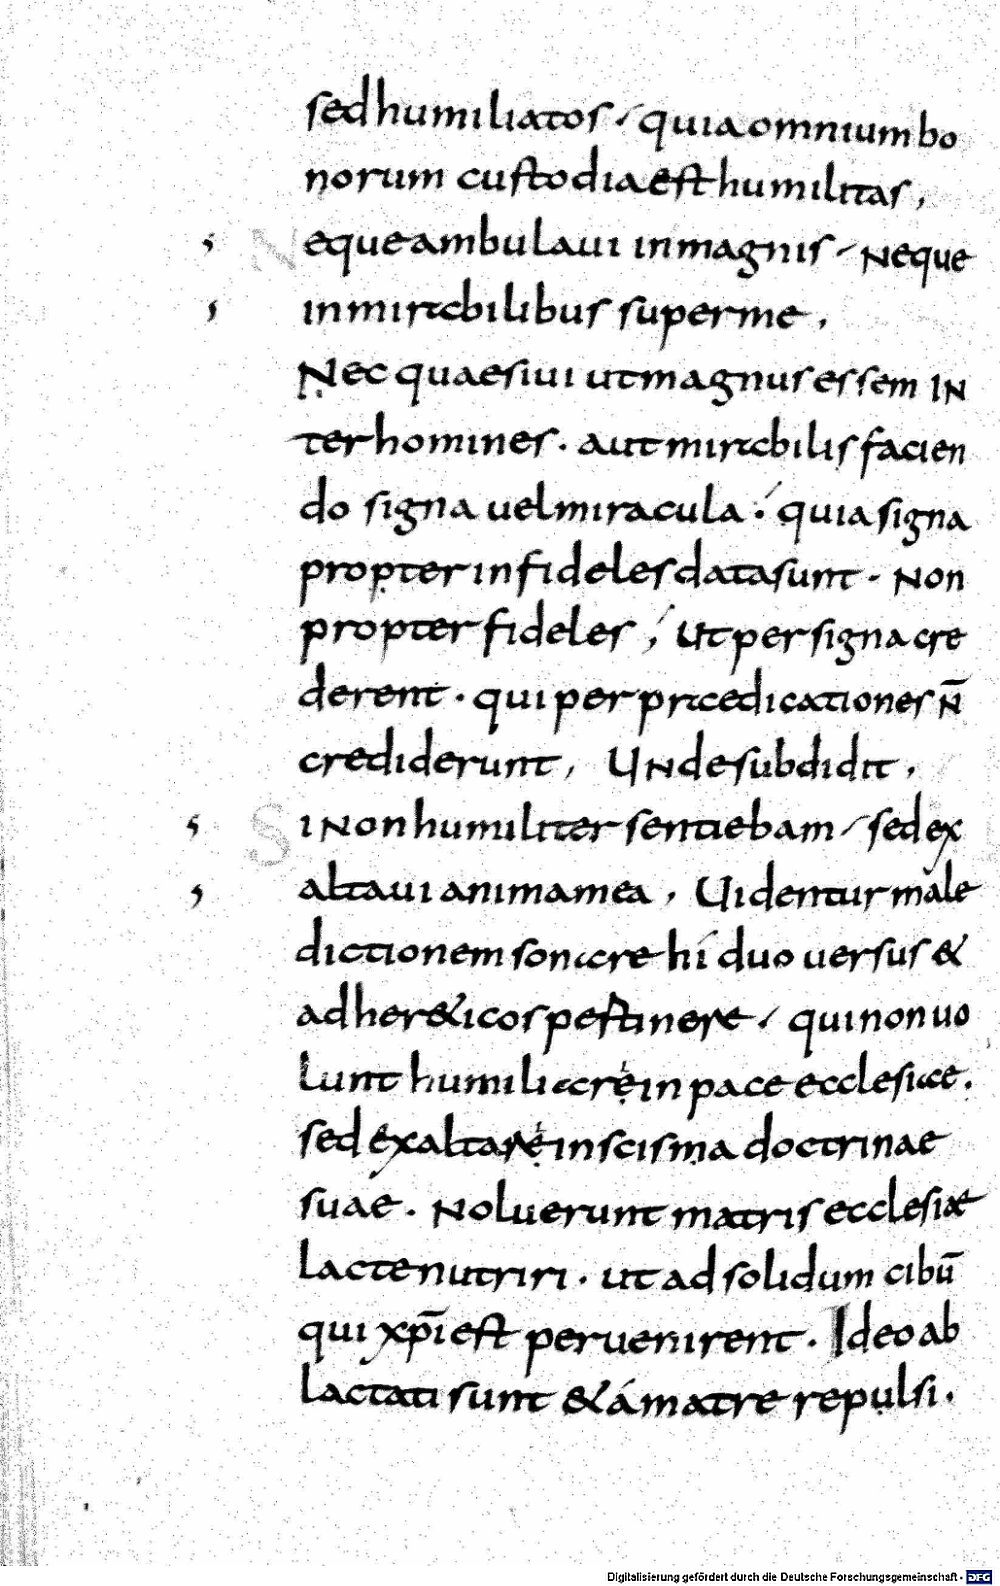 sed humiliatos / quia omnium bo
norum custodia est humilitas ,
Neque ambulaui in magnis / Neque
in mirabilibus super me ,
Nec quaesiui ut magnus essem IN
ter homines . aut mirabilis facien
do signa uel miracula : quia signa
propter infideles data sunt . Non
propter fideles ; Ut per signa cre
derent . qui per praedicationes n̄
crediderunt , Unde subdidit ,
Si Non humiliter sentiebam / sed ex
altaui anima mea , Uidentur male
dictionem sonare hí duo uersus &
ad her&icos pestinere / qui non uo
lunt humiliare in pace ecclesiae .
sed exaltare in scisma doctrinae
suae . Noluerunt matris ecclesiae
lacte nutriri . ut ad solidum cibū
qui xp̄i est peruenirent . Ideo ab
lactati sunt & á matre repulsi .
Digitalisierung gefördert durch die Deutsche Forschungsgemeinschaft - DFG